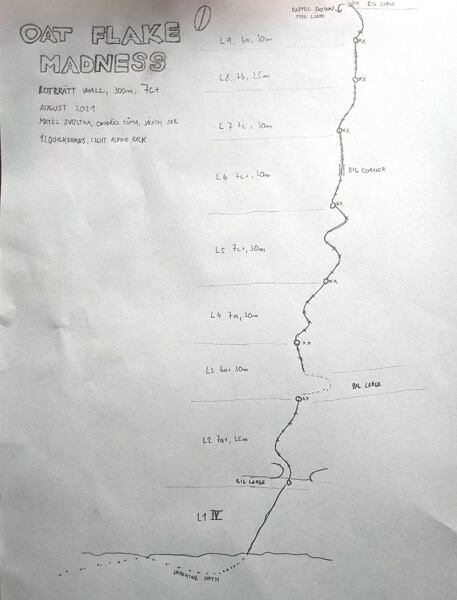 OAT FLAKE
MADNESS
ROTBRÄTT WALL, 300m, 7c+
AUGUST 2021
MATĚJ SVOJTKA, ONDŘEJ TŮMA, JÁCHYM
12 QUICKDRAWS, LIGHT ALPINE RACK
RAPPEL DOWN
THE LINE
BIG LEDGE
L9, 6a, 30m
L8, 7b, 25m
L7 7c, 30m
L6 7c+, 30m
BIG CORNER
L5 7c+, 30m
L4 7a, 30m
L3 6a+ 30m
BIG LEDGE
L2 7a+, 35m
BIG LEDGE
L1 IV
WALKING PATH